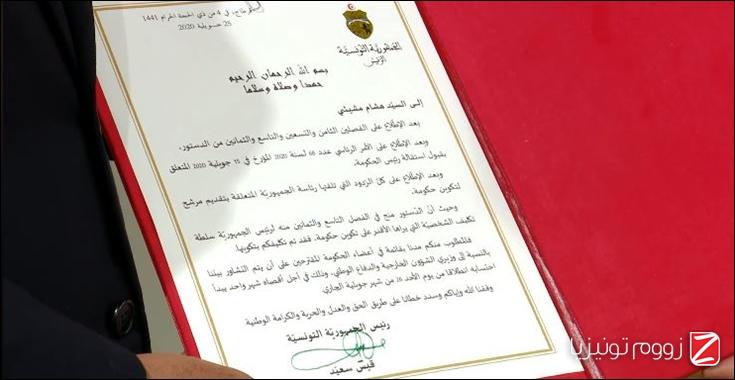 قرطاج، في 4 من ذي الحجة الحرام 1441
25 جويلية 2020
الجمهورية التونسية
الرئيس
بسم الله الرحمان الرحيم
حمدا وصلاة وسلاما
إلى السيد هشام مشيشي
بعد الإطلاع على الفصلين الثامن والتسعين والتاسع والثمانين من الدستور،
وبعد الإطلاع على الأمر الرئاسي عدد 68 لسنة 2020 المؤرخ في 15 جويلية 2020 المتعلق
بقبول استقالة رئيس الحكومة،
وبعد الإطلاع على كل الردود التي تلقتها رئاسة الجمهورية المتعلقة بتقديم مرشح
لتكوين حكومة،
وحيث أن الدستور منح في الفصل التاسع والثمانين منه لرئيس الجمهورية سلطة
تكليف الشخصية التي يراها الأقدر على تكوين حكومة، فقد تم تكليفكم بتكوينها.
فالمطلوب منكم مدنا بقائمة في أعضاء الحكومة المقترحين على أن يتم التشاور بيننا
بالنسبة إلى وزيري الشؤون الخارجية والدفاع الوطني، وذلك في أجل أقصاه شهر واحد يبدأ
احتسابه انطلاقا من يوم الأحد 26 من شهر جويلية الجاري
وفقنا الله وإياكم وسدد خطانا على طريق الحق والعدل والحرية والكرامة الوطنية
رئيس الجمهورية التونسية
قيس سعيد
زووم تونيزيا